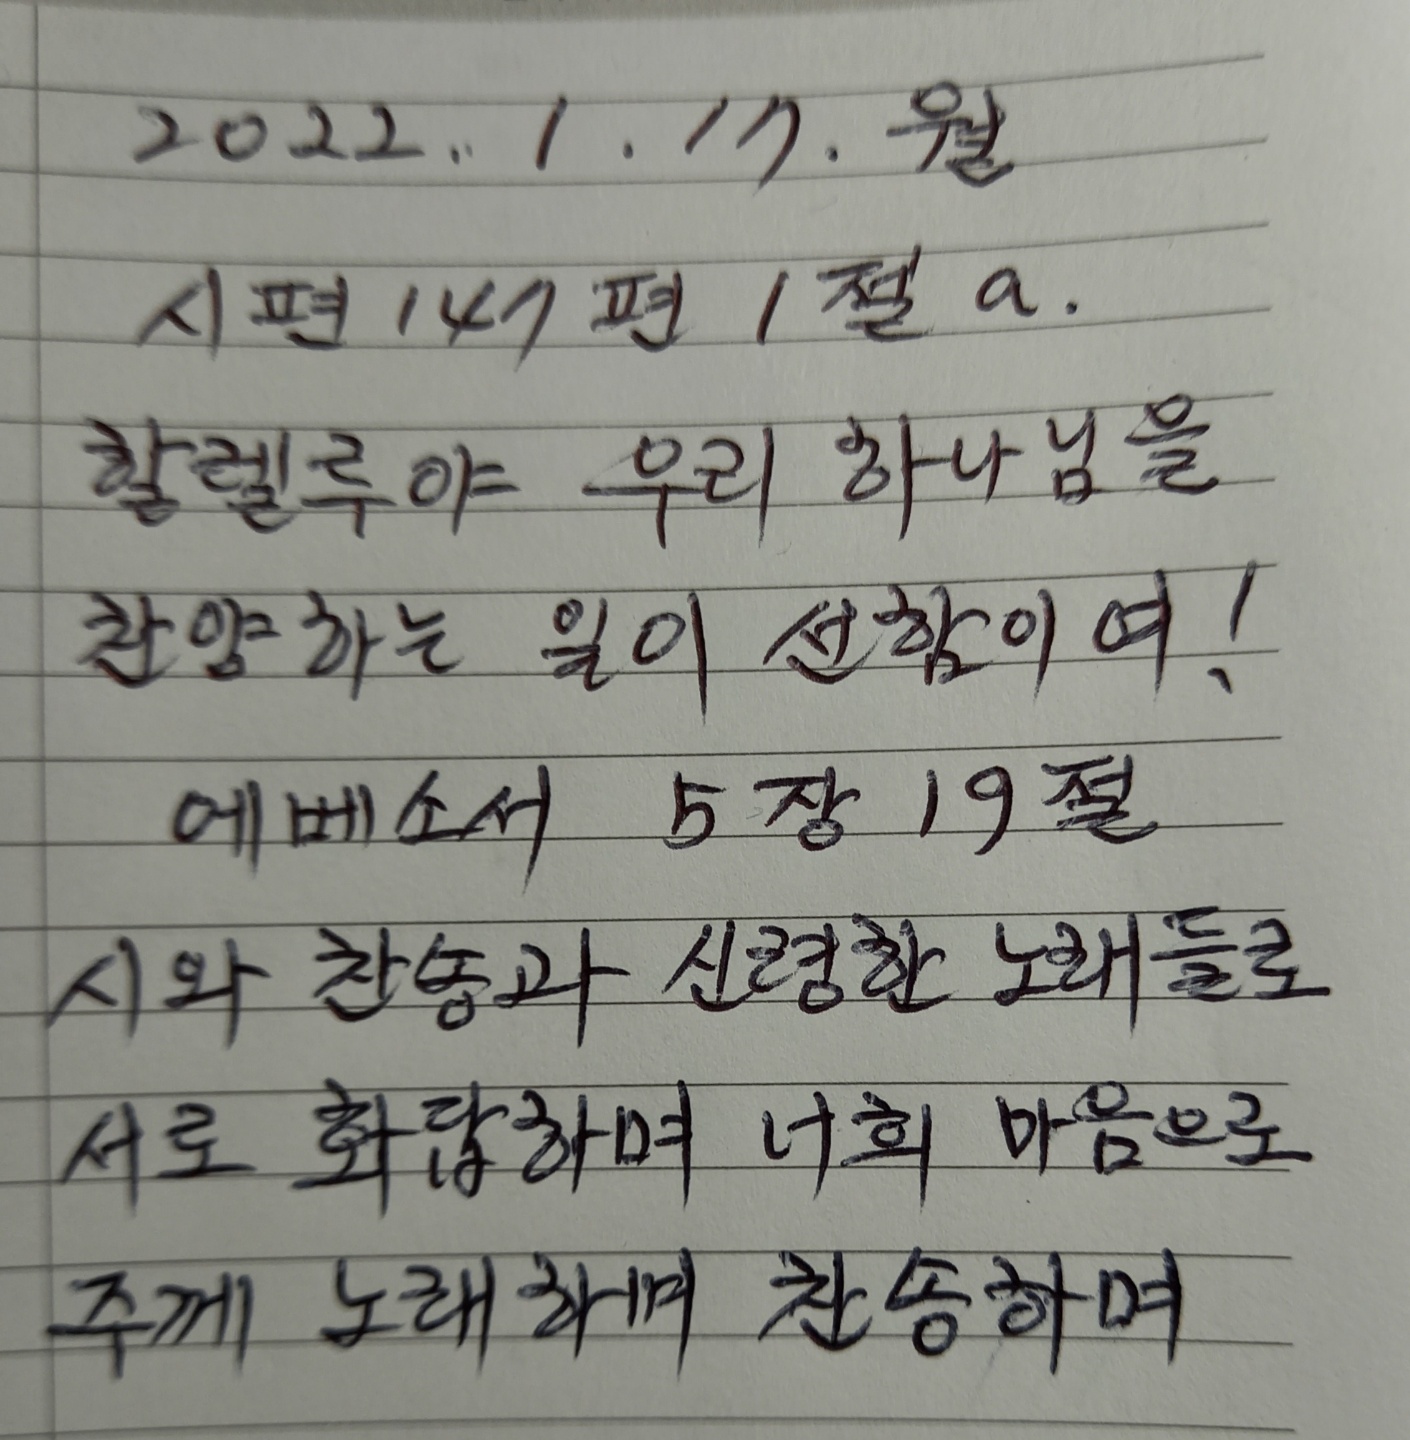 2022. 1. 17. 월
시편 147편 1절 a.
할렐루야 우리 하나님을
찬양하는 일이 선함이여!
에베소서 5장 19절
시와 찬송과 신령한 노래들로
서로 화답하며 너희 마음으로
주께 노래하며 찬송하며